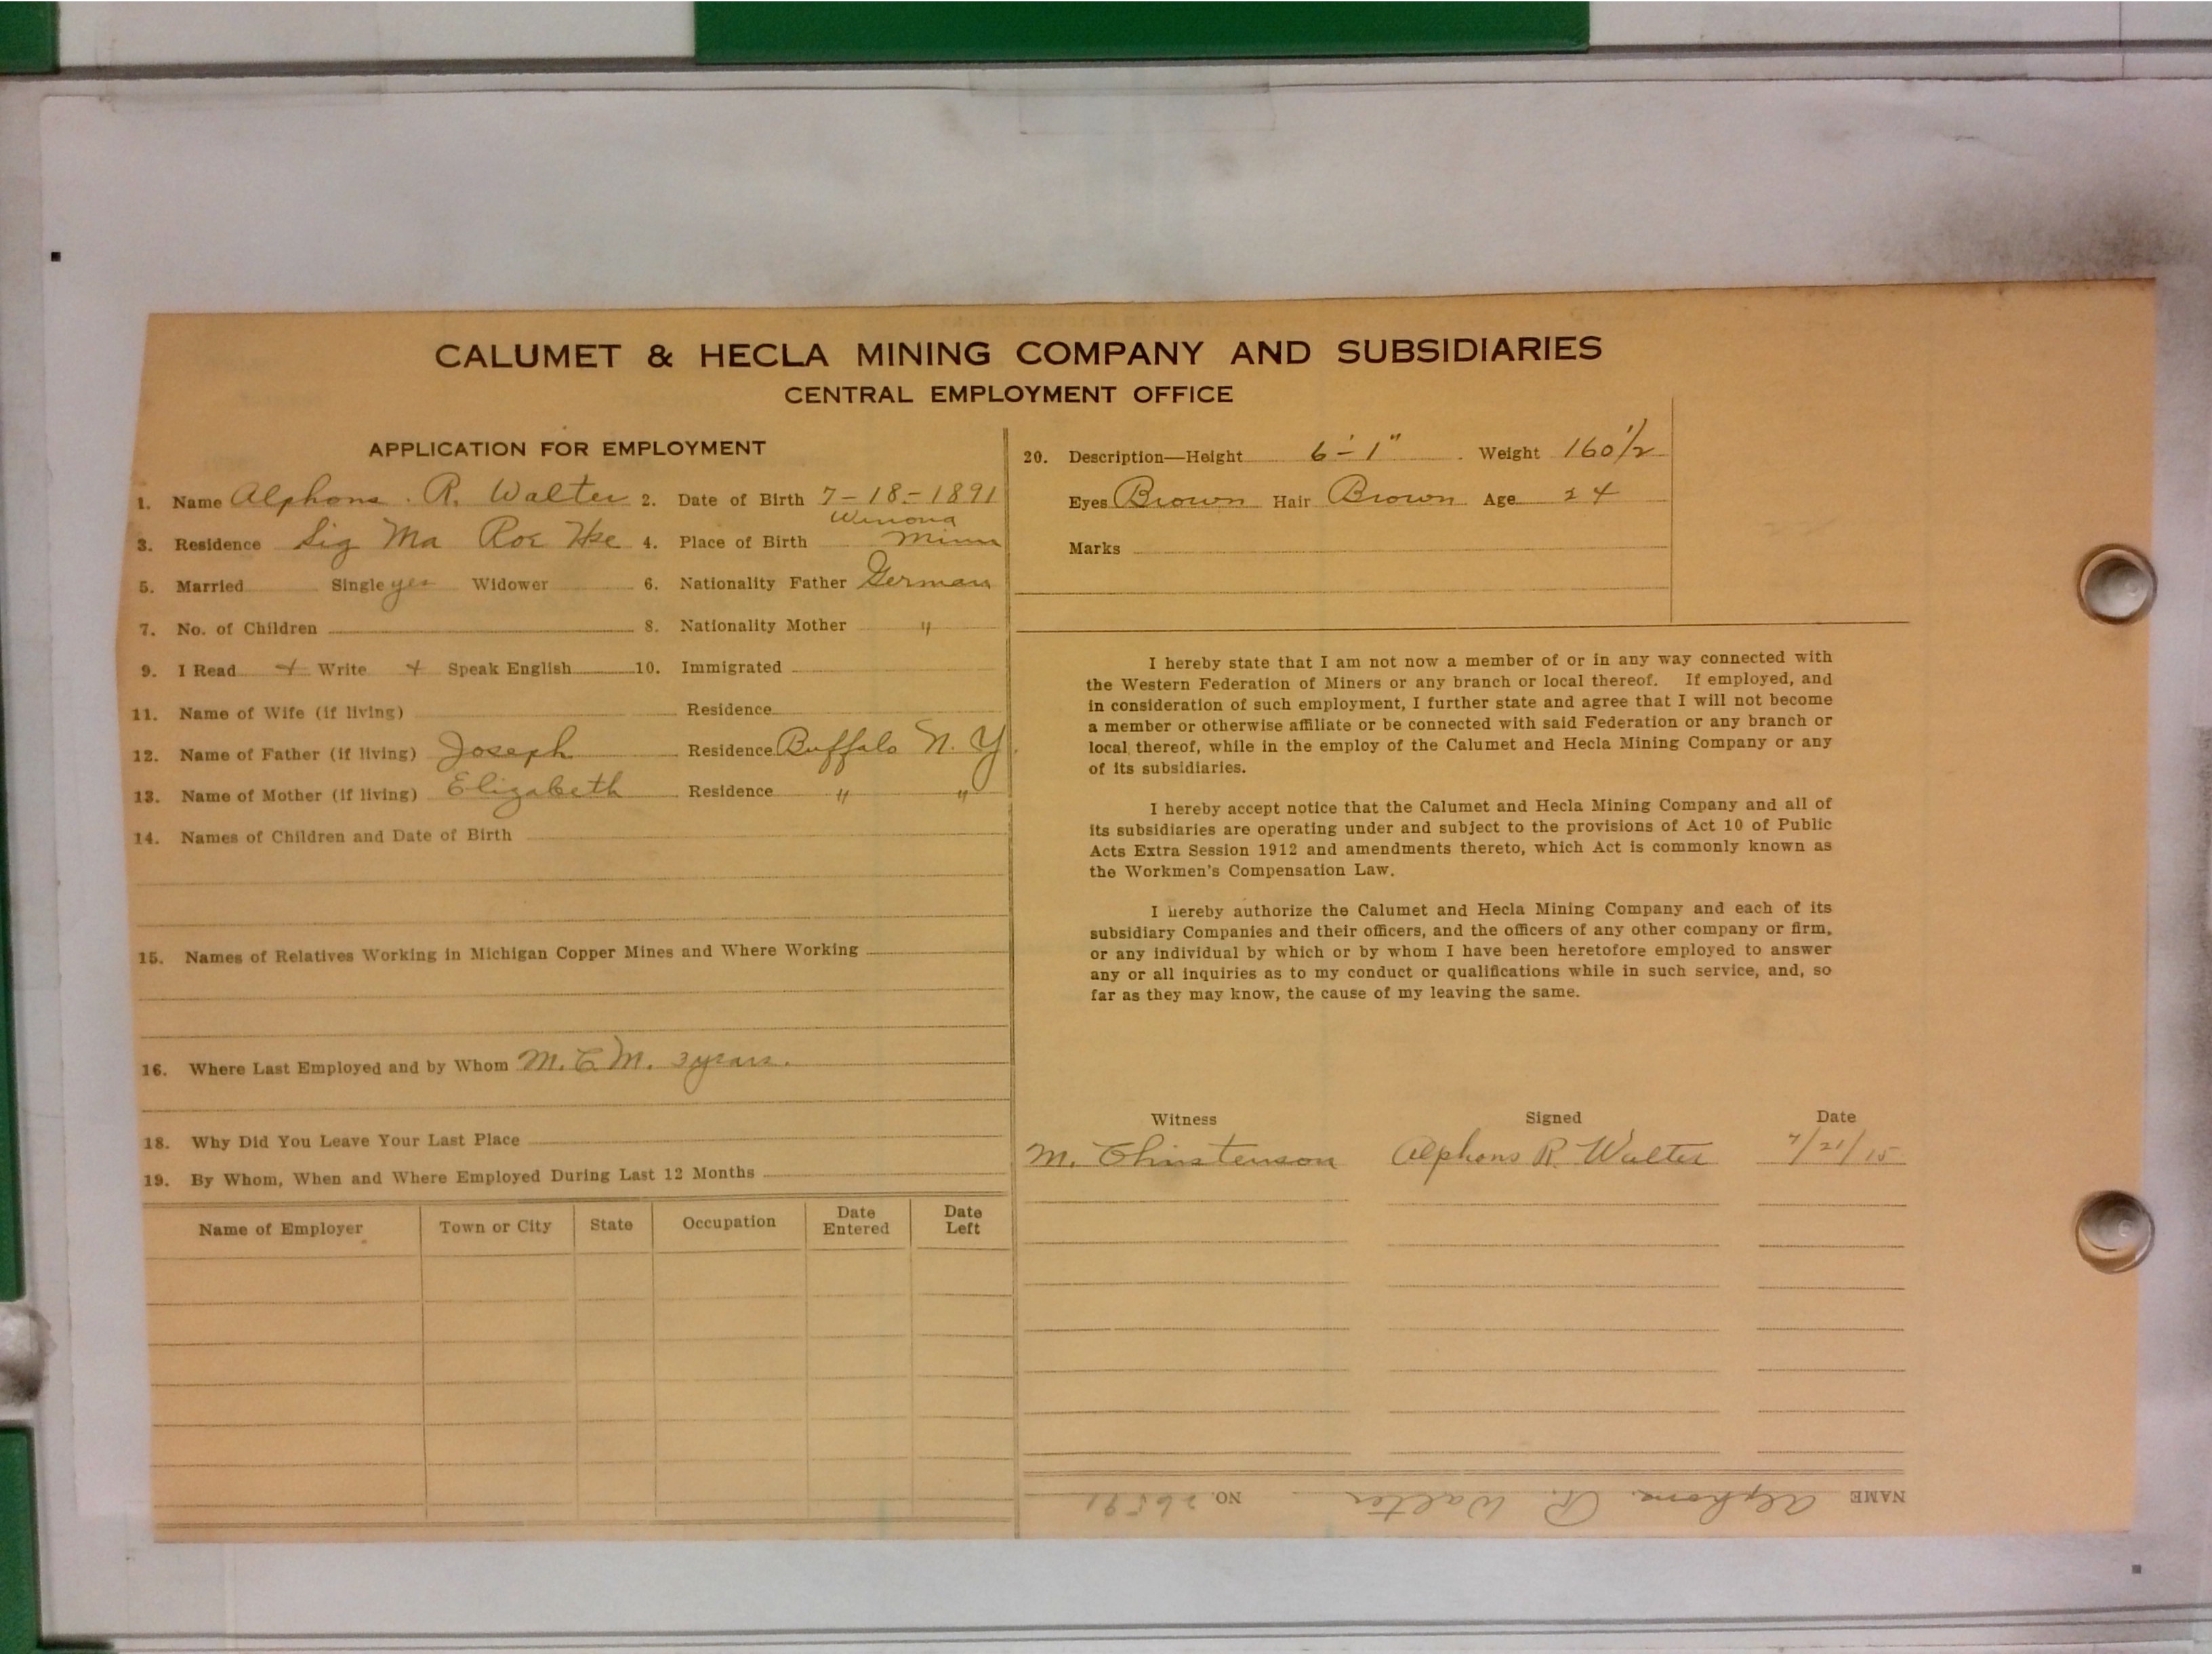 CALUMET & HECLA MINING COMPANY AND SUBSIDIARIES
CENTRAL EMPLOYMENT OFFICE
APPLICATION FOR EMPLOYMENT
1. Name Alphons. R. Walter 2. Date of Birth 7-18-1891
3. Residence Sig Ma Roe Hse 4. Place of Birth Winona Minn
5. Married Single yes Widower 6. Nationality Father German
7. No. of Children 8. Nationality Mother "
9. I Read + Write + Speak English 10. Immigrated
11. Name of Wife (if living) Residence
12. Name of Father (if living) Joseph Residence Buffalo N. Y.
13. Name of Mother (if living) Elizabeth Residence " "
14. Names of Children and Date of Birth
15. Names of Relatives Working in Michigan Copper Mines and Where Working
16. Where Last Employed and by Whom M. C. M. 3 years.
18. Why Did You Leave Your Last Place
19. By Whom, When and Where Employed During Last 12 Months
Name of Employer Town or City State Occupation Date Entered Date Left
20. Description—Height 6'-1" Weight 160 1/2
Eyes Brown Hair Brown Age 24
Marks
I hereby state that I am not now a member of or in any way connected with
the Western Federation of Miners or any branch or local thereof. If employed, and
in consideration of such employment, I further state and agree that I will not become
a member or otherwise affiliate or be connected with said Federation or any branch or
local thereof, while in the employ of the Calumet and Hecla Mining Company or any
of its subsidiaries.
I hereby accept notice that the Calumet and Hecla Mining Company and all of
its subsidiaries are operating under and subject to the provisions of Act 10 of Public
Acts Extra Session 1912 and amendments thereto, which Act is commonly known as
the Workmen's Compensation Law.
I hereby authorize the Calumet and Hecla Mining Company and each of its
subsidiary Companies and their officers, and the officers of any other company or firm,
or any individual by which or by whom I have been heretofore employed to answer
any or all inquiries as to my conduct or qualifications while in such service, and, so
far as they may know, the cause of my leaving the same.
Witness Signed Date
M. Christenson Alphons R. Walter 7/21/15
NAME Alphons. R. Walter NO. 26591